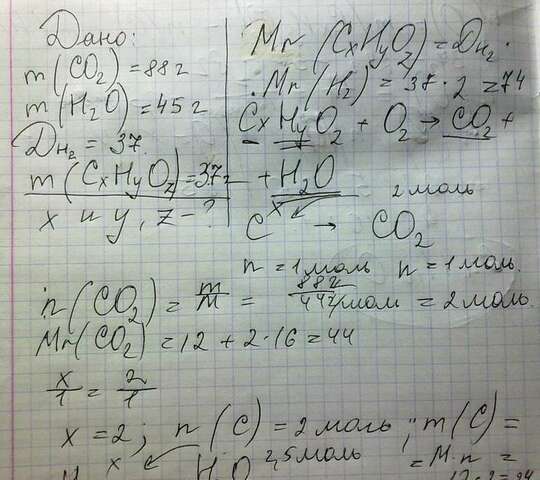 Дано:
m(CO₂)=88г
m(H₂O)=45г
D_H₂=37.
m(CxHyOz)=37г
x и y, z-?
Mr(CxHyOz)=D_H₂·
·Mr(H₂)=37·2=74
CxHyOz + O₂ → CO₂ +
+ H₂O
x 2 моль
C → CO₂
n=1моль n=1моль.
n(CO₂)=m/M=88г/44г/моль=2моль.
Mr(CO₂)=12+2·16=44
x/1=2/1
x=2; n(C)=2моль; m(C)=
x H₂O 2,5моль =M·n=
12·2=24